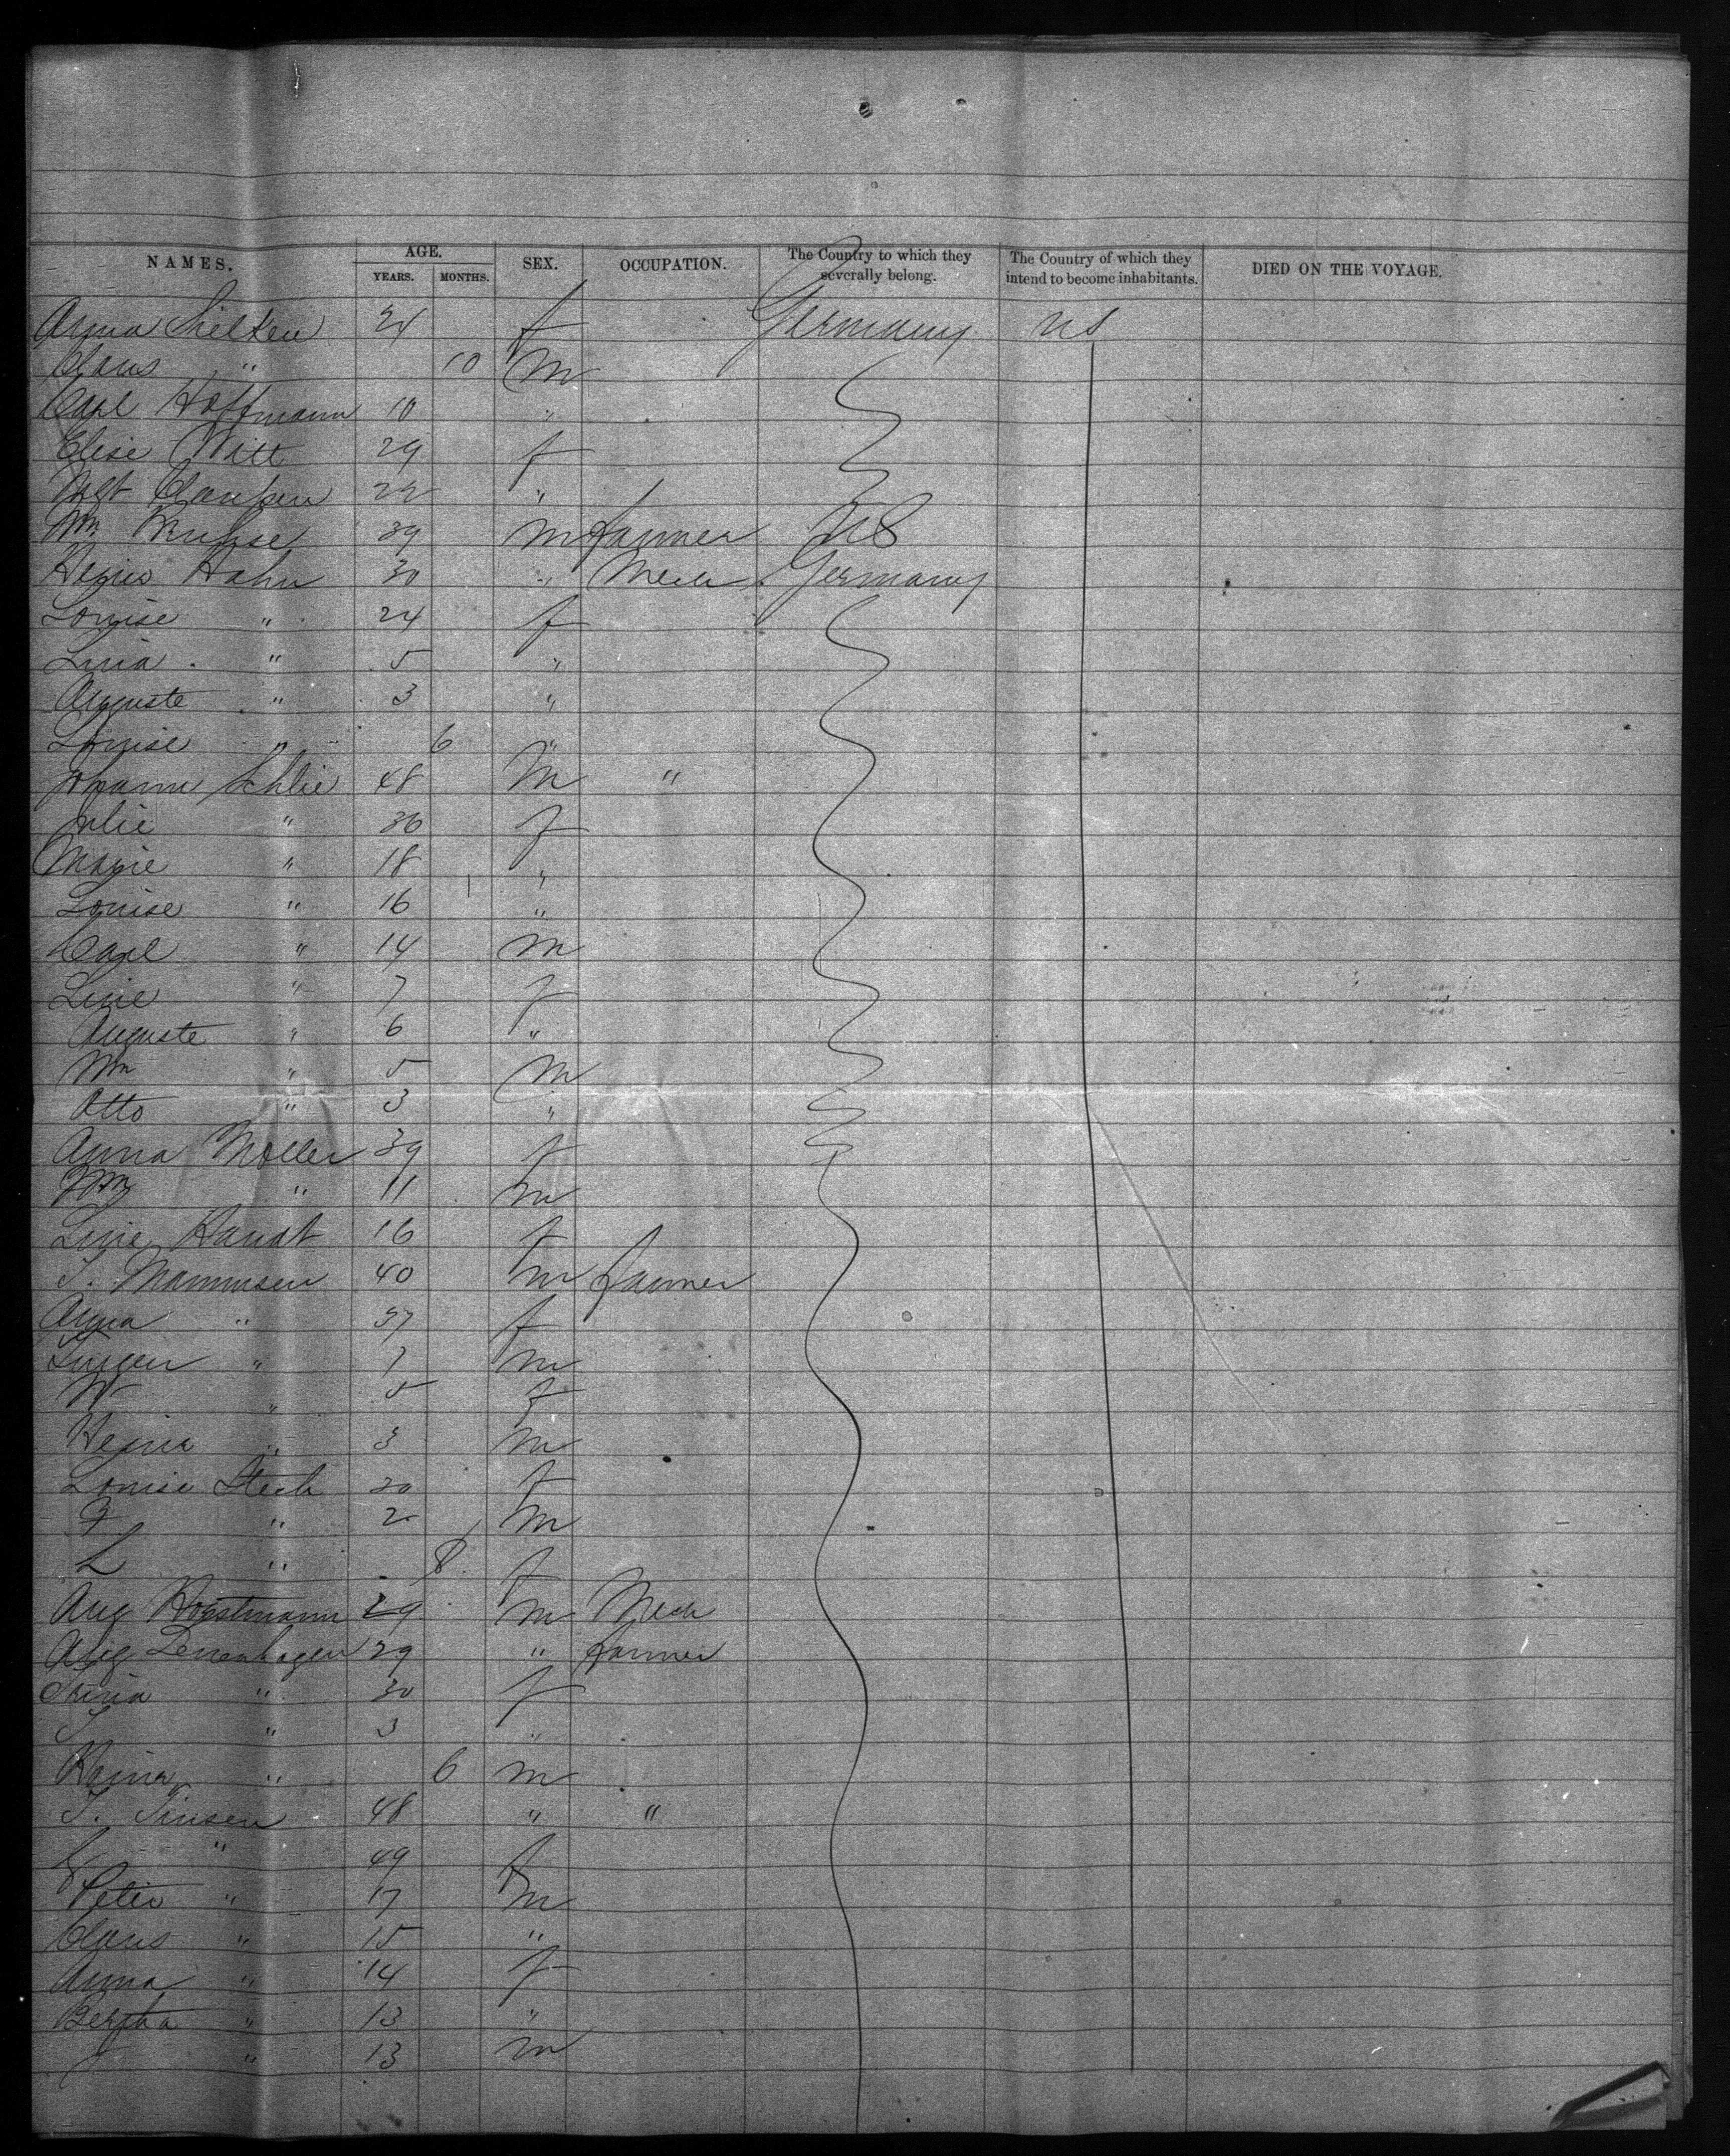 NAMES. AGE. SEX. OCCUPATION. The Country to which they severally belong. The Country of which they intend to become inhabitants. DIED ON THE VOYAGE.
YEARS. MONTHS.
Anna 24 f Germany US
Claus " 10 m
Carl Hoffmann 10 "
Elise Witt 29 f
Mgt Claussen 22 "
Wm. Kruse 39 m farmer US
Heinr Hahn 30 " Mech Germany
Louise " 24 f
Lina " 5 "
Auguste " 3 "
Louise " 6 "
Johann Schlie 48 m "
Julie " 36 f
Marie " 18 "
Louise " 16 "
Carl " 14 m
Line " 7 f
Auguste " 6 "
Wm " 5 m
Otto " 3 "
Anna Moller 39 f
Wm " 11 m
Line 16 f
T. Mommsen 40 m farmer
Anna " 37 f
" 7 m
W " 5 f
Heinr " 3 m
Louise Stech 30 f
F " 2 m
L " 8 f
Aug Horstmann 29 m Mech
Aug 29 " farmer
Stina " 30 f
" 3 "
" 6 m
T. Jensen 48 " "
" 49 f
Peter " 17 m
Claus " 15 "
Anna " 14 f
Bertha " 13 "
J " 13 m